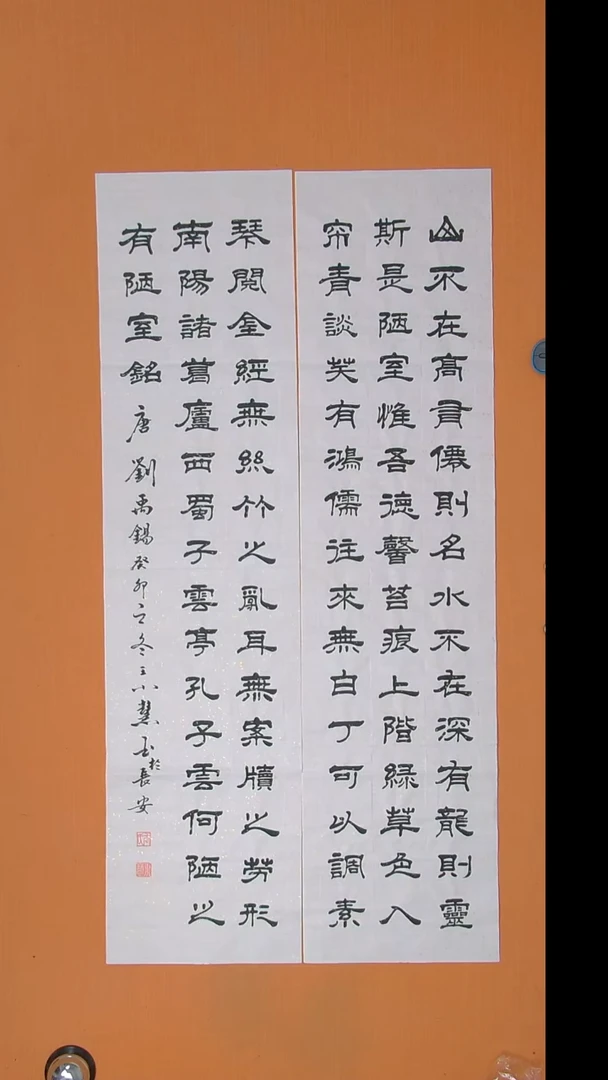 山不在高有僊則名水不在深有龍則靈
斯是陋室惟吾德馨苔痕上階緑草色入
帘青談笑有鴻儒往來無白丁可以調素
琴閱金經無絲竹之亂耳無案牘之勞形
南陽諸葛廬西蜀子雲亭孔子雲何陋之
有陋室銘 唐劉禹錫癸卯立冬王小慧書於長安